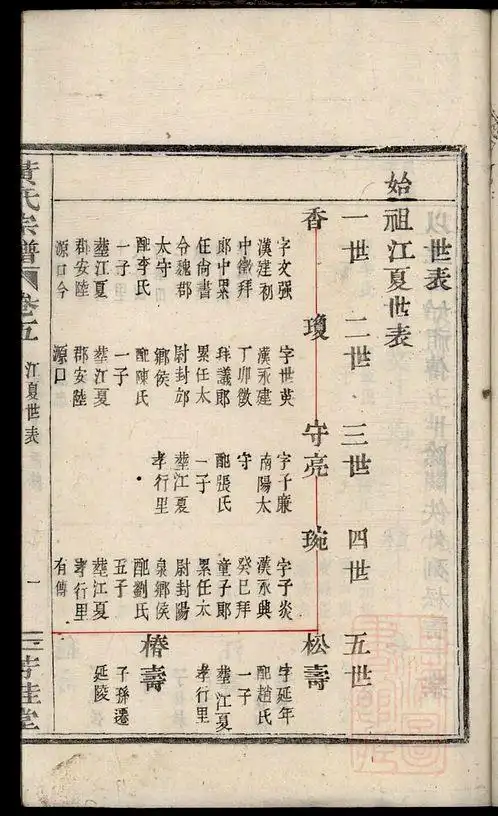 世表
始祖江夏世表
一世
二世
三世
四世
五世
香
字文强
漢建初
中徵拜
郎中累
任尚書
令魏郡
太守
配李氏
一子
塟江夏
郡安陸
源口今
瓊
字世英
漢永建
丁卯徵
拜議郎
累任太
尉封邟
鄉侯
配陳氏
一子
塟江夏
郡安陸
源口
守亮
字子廉
南陽太
守
配張氏
一子
塟江夏
孝行里
琬
字子炎
漢永興
癸巳拜
童子郎
累任太
尉封陽
泉鄉侯
配劉氏
五子
塟江夏
孝行里
有傳
松壽
字延年
配趙氏
一子
塟江夏
孝行里
椿壽
子孫遷
延陵
黃氏宗譜
卷五
江夏世表
一